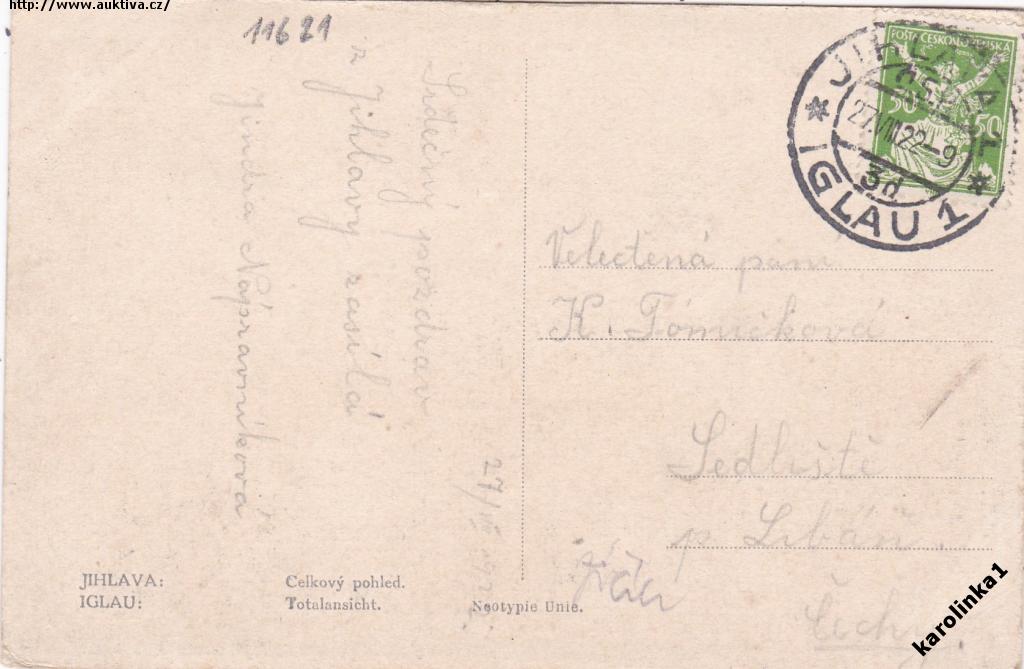 http://www.auktiva.cz/
11621
Srdečný pozdrav
z Jihlavy zasílá
Jindra Nápravníkova
27/VIII 1922.
POŠTA ČESKOSLOVENSKA
50 50
JIHLAVA 1
ČSP
27.VIII.22-9
3d
* IGLAU 1 *
Velectená paní
K. Tómičková
Sedliště
p. Libáň
Jičín
Čechy.
JIHLAVA: Celkový pohled.
IGLAU: Totalansicht.
Neotypie Unie.
karolinka1